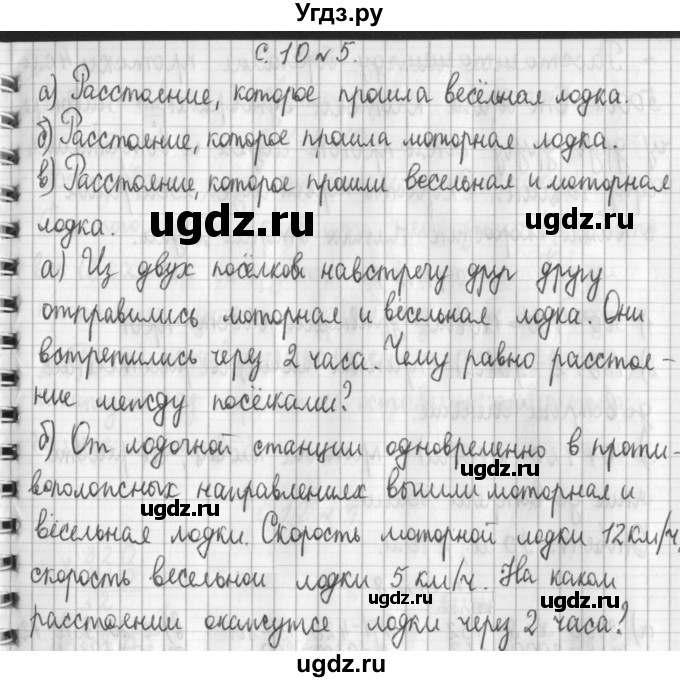 Угдз.ру
с. 10 № 5.
а) Расстояние, которое прошла весёльная лодка.
б) Расстояние, которое прошла моторная лодка.
в) Расстояние, которое прошли весельная и моторная
лодка.
ugdz.ru
ugdz.ru
а) Из двух посёлков навстречу друг другу
отправились моторная и весельная лодка. Они
встретились через 2 часа. Чему равно расстоя-
ние между посёлками?
б) От лодочной станции одновременно в проти-
ugdz.ru
воположных направлениях вышли моторная и
ugdz.ru
весельная лодки. Скорость моторной лодки 12 км/ч,
скорость весельной лодки 5 км/ч. На каком
ugdz.ru
ugdz.ru
расстоянии окажутся лодки через 2 часа?
ugdz.ru